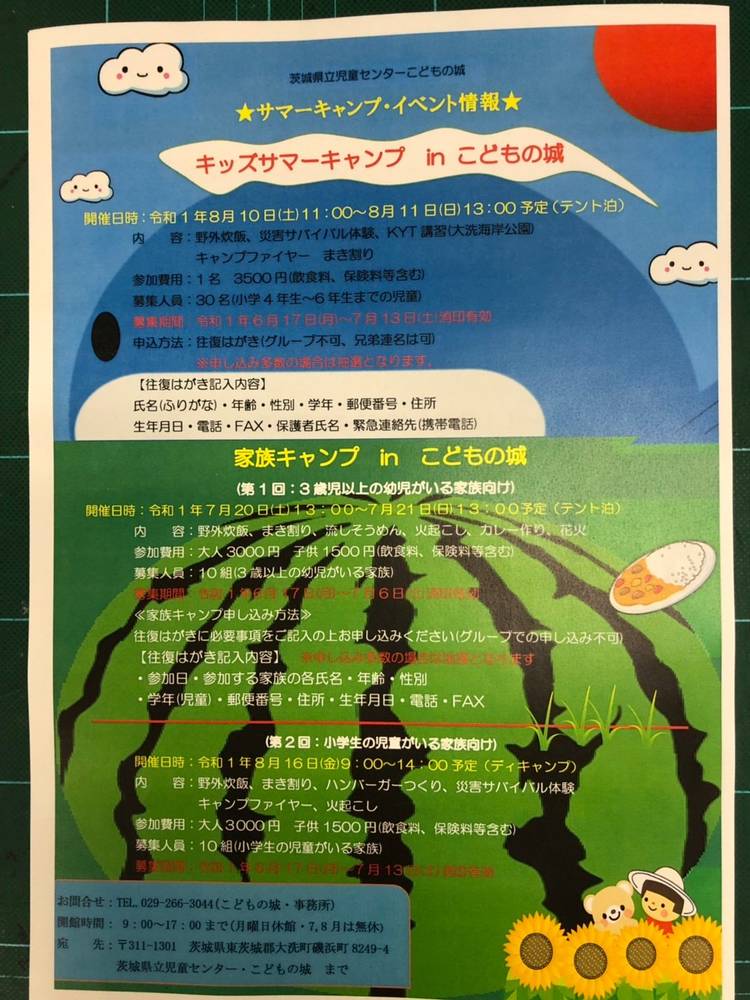 茨城県立児童センターこどもの城
★サマーキャンプ・イベント情報★
キッズサマーキャンプ in こどもの城
開催日時：令和1年8月10日(土)11：00～8月11日(日)13：00予定（テント泊）
内 容：野外炊飯、災害サバイバル体験、KYT講習(大洗海岸公園)
キャンプファイヤー まき割り
参加費用：1名 3500円(飲食料、保険料等含む)
募集人員：30名(小学4年生～6年生までの児童)
募集期間：令和1年6月17日(月)～7月13日(土)消印有効
申込方法：往復はがき(グループ不可、兄弟連名は可)
※申し込み多数の場合は抽選となります。
【往復はがき記入内容】
氏名(ふりがな)・年齢・性別・学年・郵便番号・住所
生年月日・電話・FAX・保護者氏名・緊急連絡先(携帯電話)
家族キャンプ in こどもの城
(第1回：3歳児以上の幼児がいる家族向け)
開催日時：令和1年7月20日(土)13：00～7月21日(日)13：00予定（テント泊）
内 容：野外炊飯、まき割り、流しそうめん、火起こし、カレー作り、花火
参加費用：大人3000円 子供1500円(飲食料、保険料等含む)
募集人員：10組(3歳以上の幼児がいる家族)
募集期間：令和1年6月17日(月)～7月6日(土)消印有効
≪家族キャンプ申し込み方法≫
往復はがきに必要事項をご記入の上お申し込みください(グループでの申し込み不可)
【往復はがき記入内容】 ※申し込み多数の場合は抽選となります
・参加日・参加する家族の各氏名・年齢・性別
・学年(児童)・郵便番号・住所・生年月日・電話・FAX
(第2回：小学生の児童がいる家族向け)
開催日時：令和1年8月16日(金)9：00～14：00予定（デイキャンプ）
内 容：野外炊飯、まき割り、ハンバーガーつくり、災害サバイバル体験
キャンプファイヤー、火起こし
参加費用：大人3000円 子供1500円(飲食料、保険料等含む)
募集人員：10組(小学生の児童がいる家族)
募集期間：令和1年6月17日(月)～7月13日(土)消印有効
お問合せ：TEL.029-266-3044(こどもの城・事務所)
開館時間： 9：00～17：00まで(月曜日休館・7,8月は無休)
宛 先：〒311-1301 茨城県東茨城郡大洗町磯浜町8249-4
茨城県立児童センター・こどもの城 まで